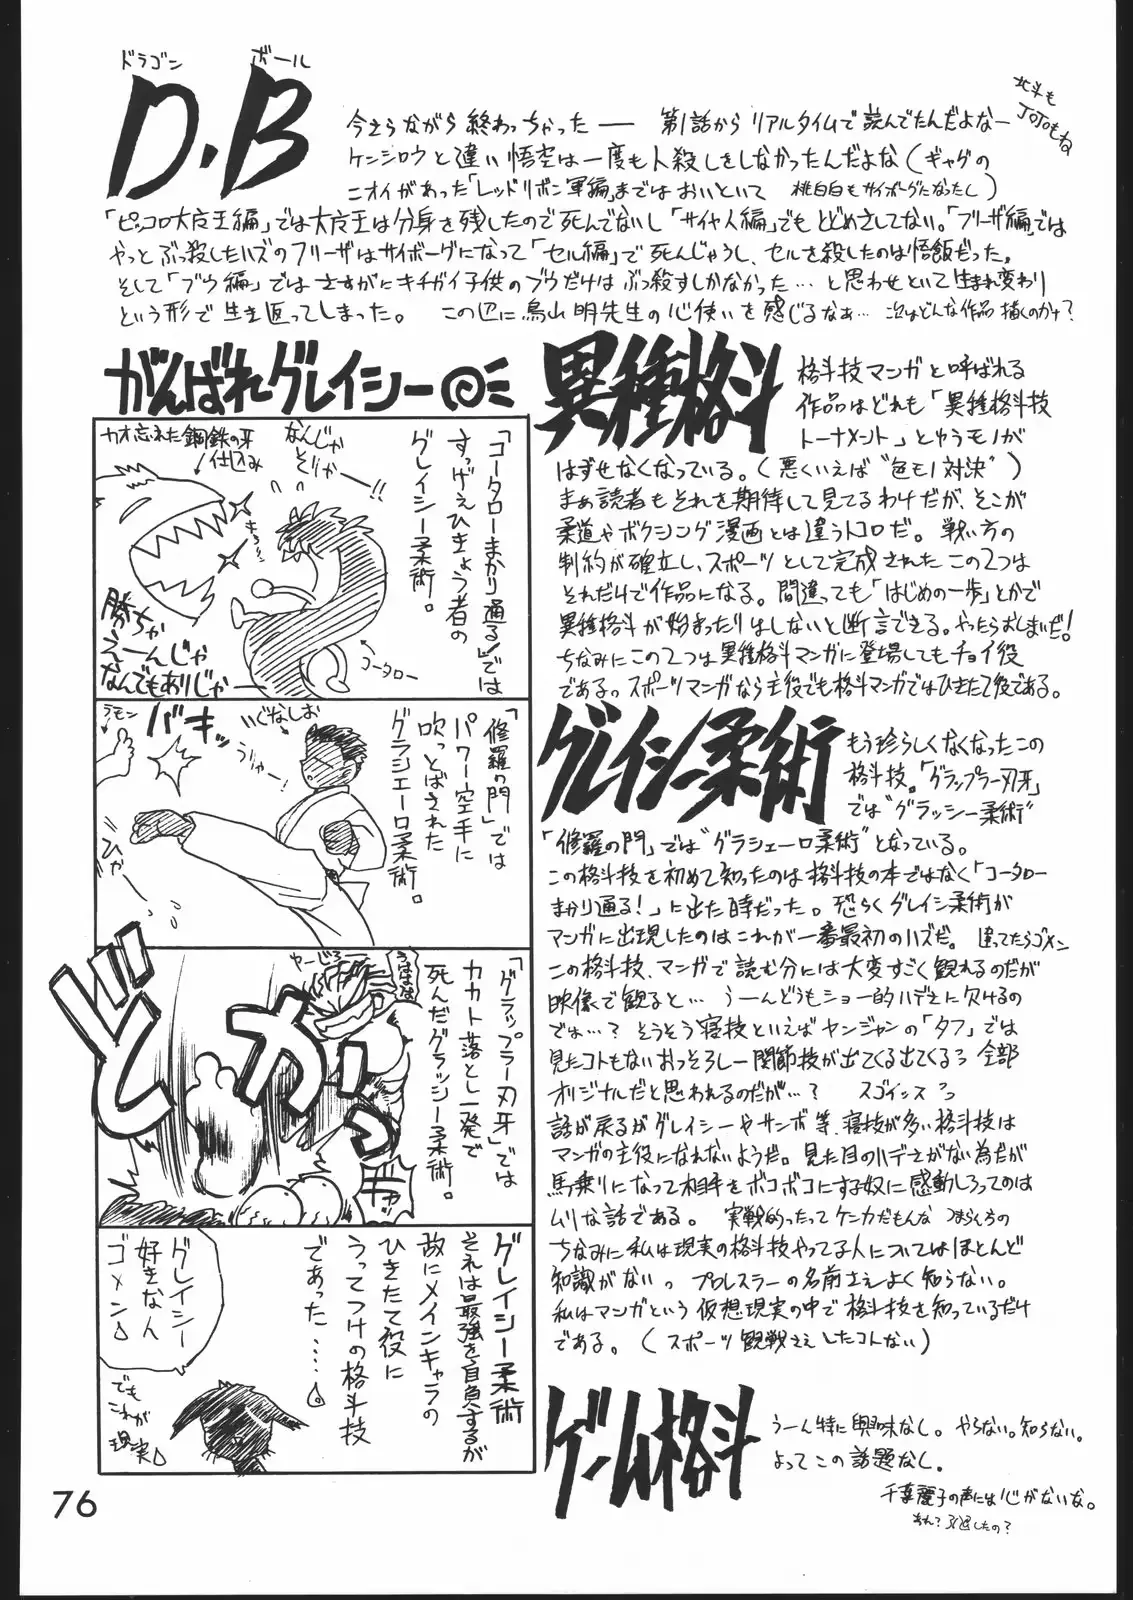 ドラゴン ボール
D.B
今さらながら終わっちゃった── 第1話からリアルタイムで読んでたんだよなー
北斗も
JOJOもね
ケンシロウと違い悟空は一度も人殺しをしなかったんだよな(ギャグの
ニオイがあった「レッドリボン軍編」まではおいといて 桃白白もサイボーグになったし)
「ピッコロ大魔王編」では大魔王は分身を残したので死んでないし「サイヤ人編」でもとどめさしてない。「フリーザ編」では
やっとぶっ殺したハズのフリーザはサイボーグになって「セル編」で死んじゃうし、セルを殺したのは悟飯だった。
そして「ブウ編」ではさすがにキチガイ子供のブウだけはぶっ殺すしかなかった…と思わせといて生まれ変わり
という形で生き返ってしまった。 この辺に鳥山明先生の心使いを感じるなぁ… 次はどんな作品描くのかナ?
がんばれグレイシー
「コータローまかり通る!」では
すっげえひきょう者の
グレイシー柔術。
なんじゃ
そりゃー!!
カオ忘れた鋼鉄の牙
仕込み
勝ちゃ
えーんじゃ
なんでもありじゃー
コータロー
「修羅の門」では
パワー空手に
吹っとばされた
グラシエーロ柔術。
ラモン
バキッ
いぐなしお
うりゃー!
ひゃー
「グラップラー刃牙」では
カカト落とし一発で
死んだグラッシー柔術。
どかっ
ギャッ
グレイシー柔術
それは最強を自負するが
故にメインキャラの
ひきたて役に
うってつけの格斗技
であった……。
グレイシー
好きなん
ゴメン
でも
これが
現実
異種格斗
格斗技マンガと呼ばれる
作品はどれも「異種格斗技
トーナメント」とゆうモノが
はずせなくなっている。(悪くいえば“色モノ対決”)
まぁ読者もそれを期待して見てるわけだが、そこが
柔道やボクシング漫画とは違うトコロだ。戦い方の
制約が確立し、スポーツとして完成されたこの2つは
それだけで作品になる。間違っても「はじめの一歩」とかで
異種格斗が始まったりはしないと断言できる。やったらおしまいだ!
ちなみにこの2つは異種格斗マンガに登場してもチョイ役
である。スポーツマンガなら主役でも格斗マンガではひきたて役である。
グレイシー柔術
もう珍らしくなくなったこの
格斗技。「グラップラー刃牙」
では“グラッシー柔術”
「修羅の門」では“グラシエーロ柔術”となっている。
この格斗技を初めて知ったのは格斗技の本ではなく「コータロー
まかり通る!」に出た時だった。恐らくグレイシー柔術が
マンガに出現したのはこれが一番最初のハズだ。違ってたらゴメン
この格斗技、マンガで読む分には大変すごく観れるのだが
映像で観ると… うーんどうもショー的ハデさに欠けるの
では…? そうそう寝技といえばヤンジャンの「タフ」では
見たコトもないおっそろしー関節技が出てくる出てくるっ 全部
オリジナルだと思われるのだが…? スゴイッスっ
話が戻るがグレイシーやサンボ等、寝技が多い格斗技は
マンガの主役になれないようだ。見た目のハデさがない為だが
馬乗りになって相手をボコボコにする奴に感動しろってのは
ムリな話である。 実戦的ったってケンカだもんな つまらんちの
ちなみに私は現実の格斗技やってる人についてはほとんど
知識がない。プロレスラーの名前さえよく知らない。
私はマンガという仮想現実の中で格斗技を知っているだけ
である。(スポーツ観戦さえしたコトない)
ゲーム格斗
うーん特に興味なし。やらない。知らない。
よってこの話題なし。
千葉麗子の声には心がないな。
あれ?引退したの?
76